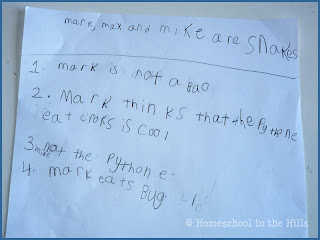 mark, max and mike are snakes
1. mark is not a
2. Mark thinks that the Pythone
eat is cool
3 mike not the Pythone.
4. mark eats Bug
© Homeschool in the Hills